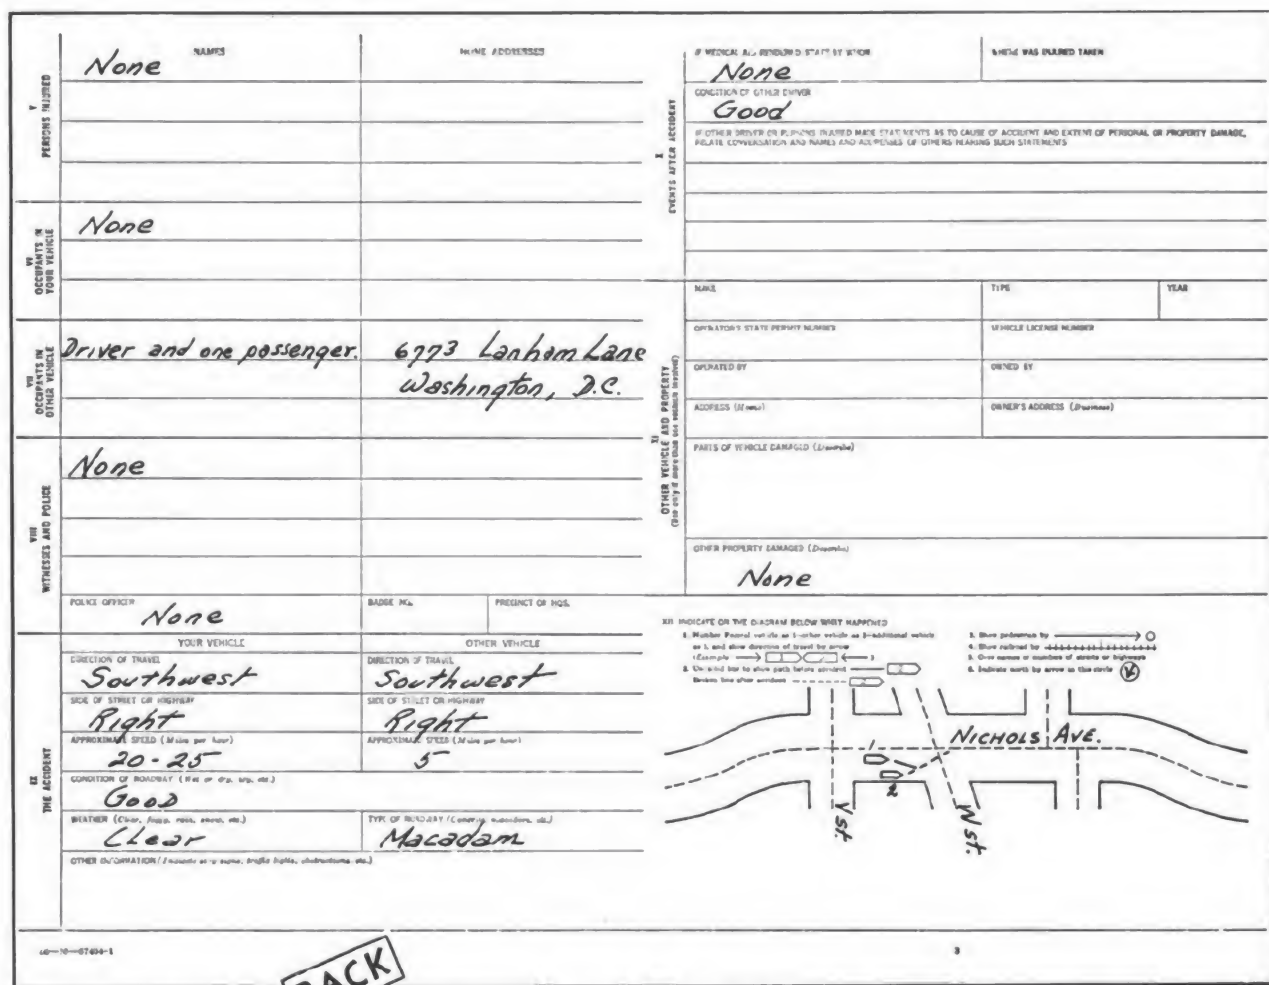 NAMES
HOME ADDRESSES
V
PERSONS INJURED
None
VI
OCCUPANTS IN
YOUR VEHICLE
None
VII
OCCUPANTS IN
OTHER VEHICLE
Driver and one passenger.
6773 Lanham Lane
Washington, D.C.
VIII
WITNESSES AND POLICE
None
POLICE OFFICER
None
BADGE NO.
PRECINCT OR HQS.
IX
THE ACCIDENT
YOUR VEHICLE
OTHER VEHICLE
DIRECTION OF TRAVEL
Southwest
DIRECTION OF TRAVEL
Southwest
SIDE OF STREET OR HIGHWAY
Right
SIDE OF STREET OR HIGHWAY
Right
APPROXIMATE SPEED (Miles per hour)
20-25
APPROXIMATE SPEED (Miles per hour)
5
CONDITION OF ROADWAY (Wet or dry, icy, etc.)
Good
WEATHER (Clear, foggy, rain, snow, etc.)
Clear
TYPE OF ROADWAY (Concrete, macadam, etc.)
Macadam
OTHER INFORMATION (signs, traffic lights, obstructions, etc.)
67404-1
BACK
X
EVENTS AFTER ACCIDENT
IF MEDICAL AID RENDERED STATE BY WHOM
None
WHERE WAS INJURED TAKEN
CONDITION OF OTHER DRIVER
Good
IF OTHER DRIVER OR PERSONS INJURED MADE STATEMENTS AS TO CAUSE OF ACCIDENT AND EXTENT OF PERSONAL OR PROPERTY DAMAGE,
RELATE CONVERSATION AND NAMES AND ADDRESSES OF OTHERS HEARING SUCH STATEMENTS
XI
OTHER VEHICLE AND PROPERTY
(Use only if more than one vehicle involved)
MAKE
TYPE
YEAR
OPERATOR'S STATE PERMIT NUMBER
VEHICLE LICENSE NUMBER
OPERATED BY
OWNED BY
ADDRESS (Home)
OWNER'S ADDRESS (Business)
PARTS OF VEHICLE DAMAGED (Describe)
OTHER PROPERTY DAMAGED (Describe)
None
XII INDICATE ON THE DIAGRAM BELOW WHAT HAPPENED
1. Number Federal vehicle as 1—other vehicle as 2—additional vehicle
as 3, and show direction of travel by arrow
(Example
2. Use solid line to show path before accident
Broken line after accident
3. Show pedestrian by
4. Show railroad by
5. Give names or numbers of streets or highways
6. Indicate north by arrow in this circle
NICHOLS AVE.
1
2
V St.
W St.
3